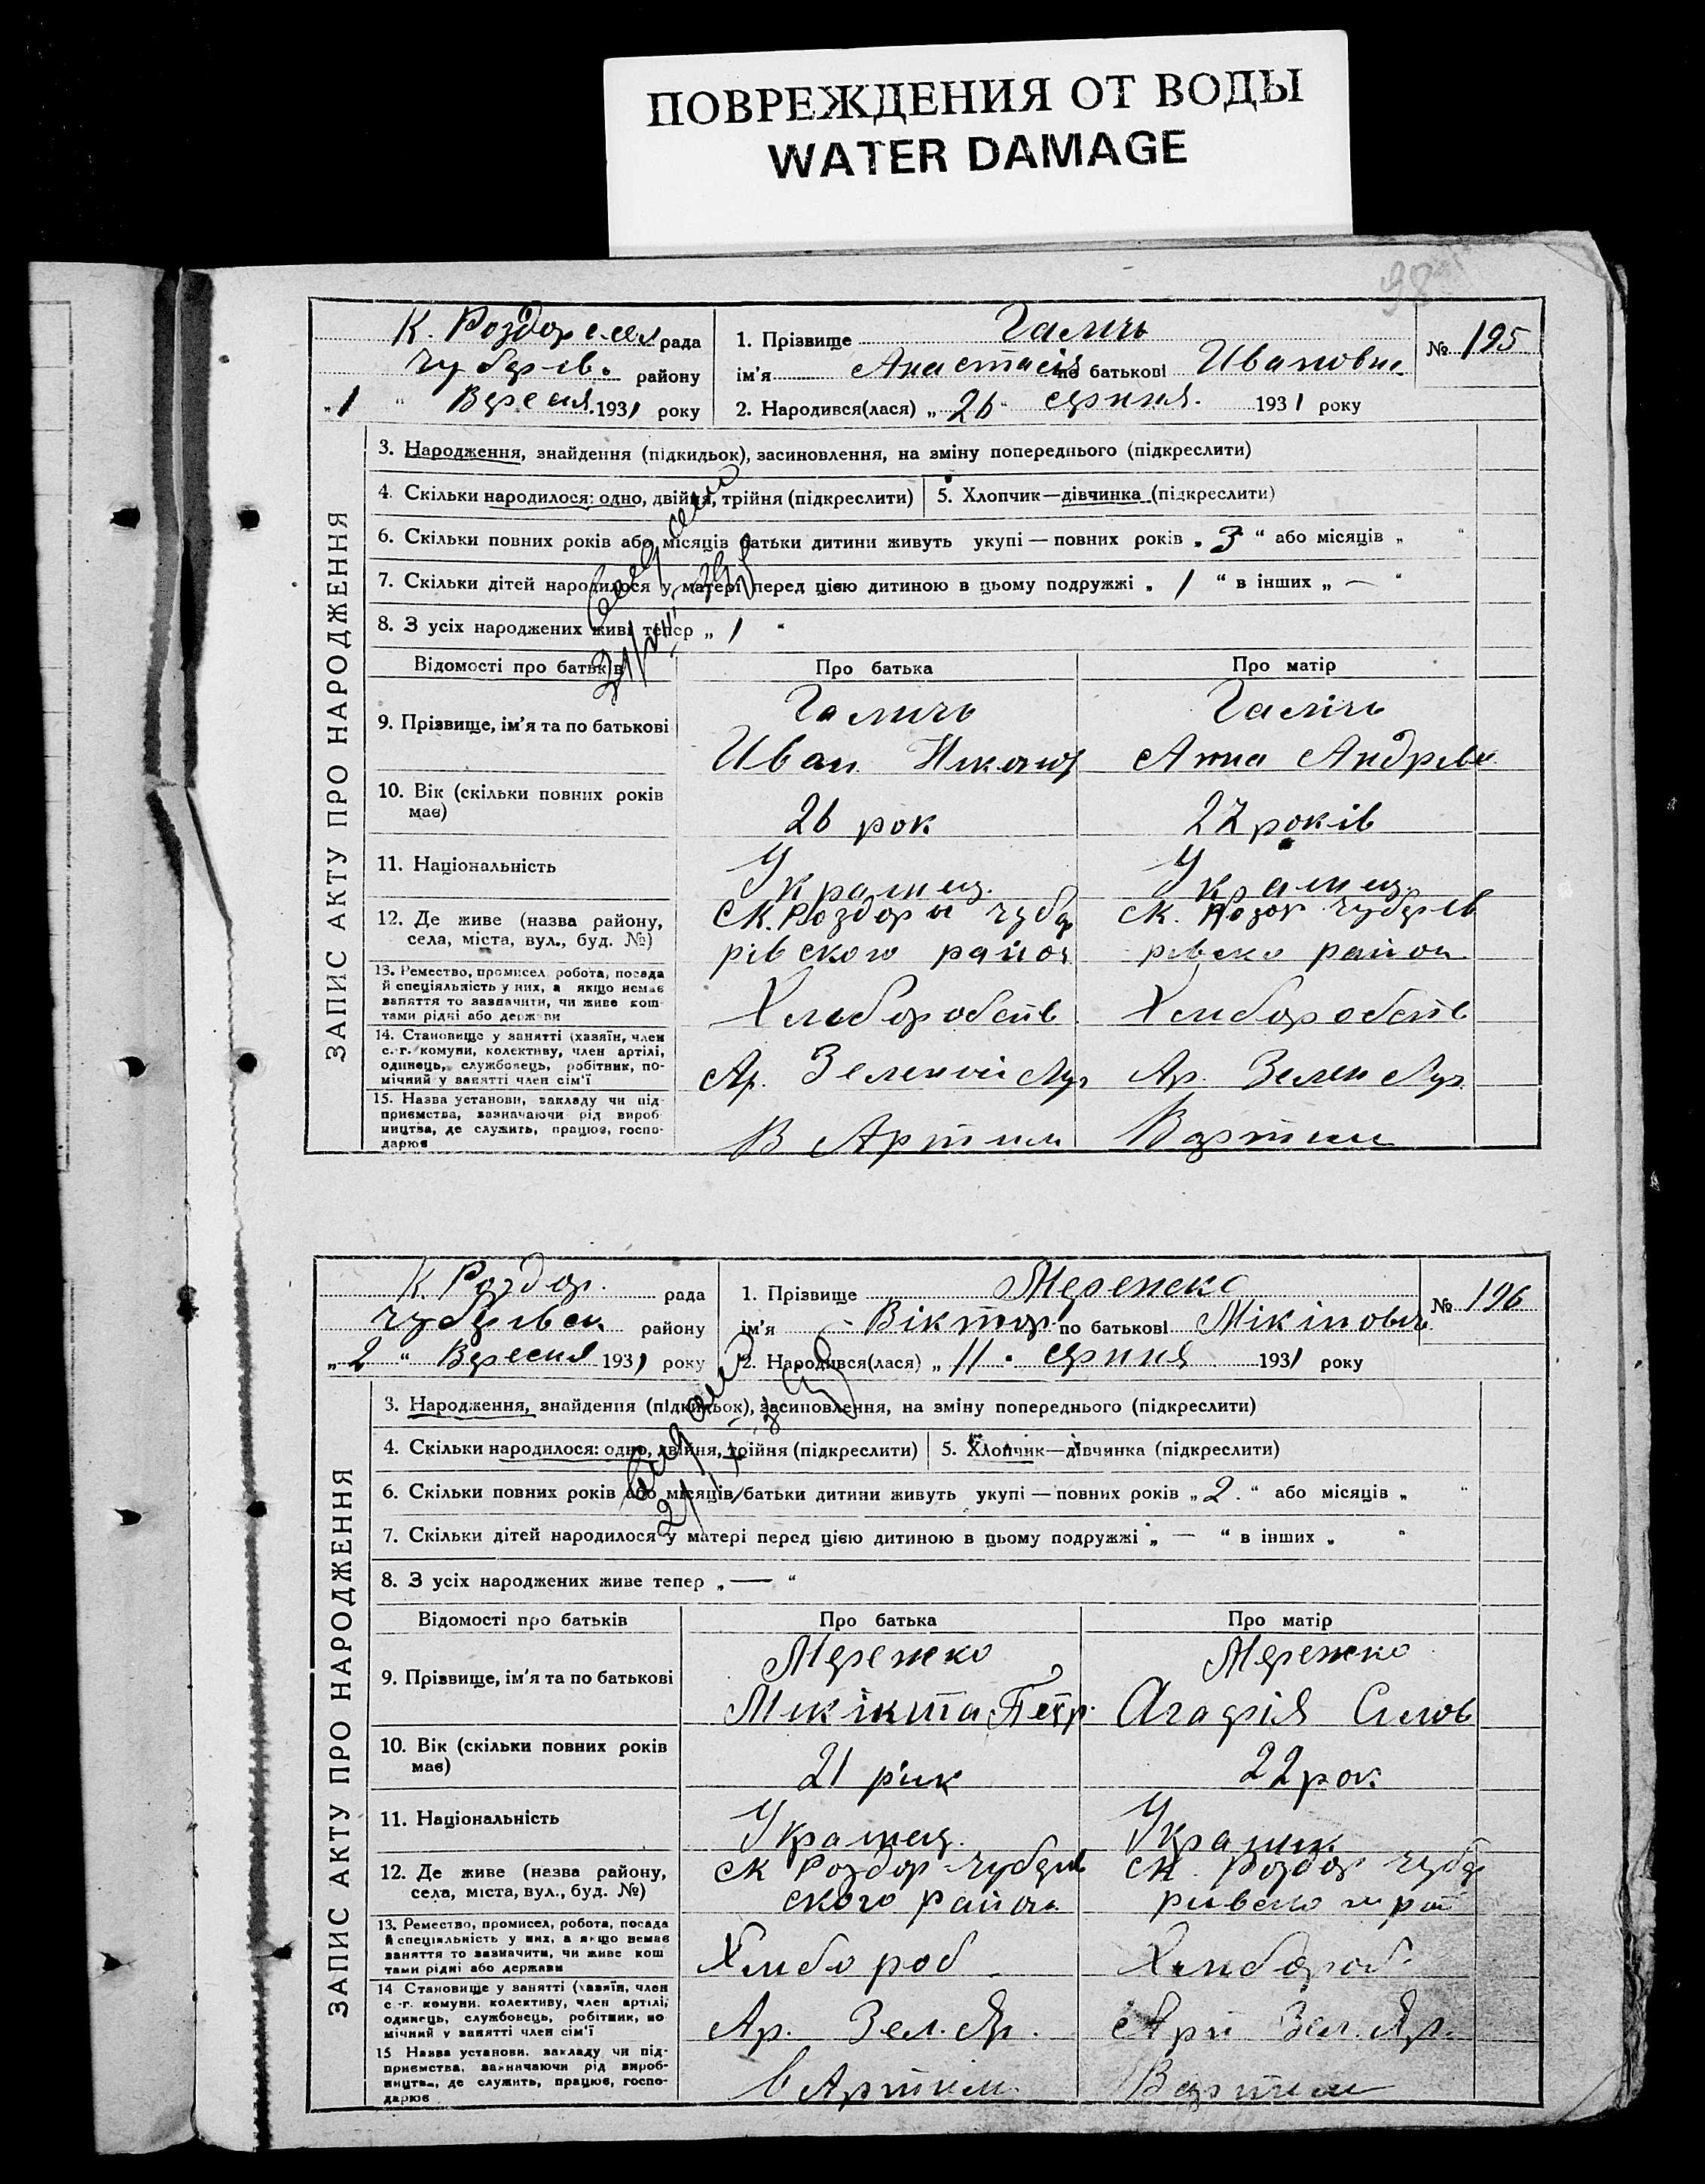 ПОВРЕЖДЕНИЯ ОТ ВОДЫ
WATER DAMAGE
98
ЗАПИС АКТУ ПРО НАРОДЖЕННЯ
К. Роздор рада
Чубарів. району
„1 “ Вересня 1931 року
1. Прізвище Галичь
ім'я Анастасія по батькові Ивановна
2. Народився(лася) „ 26 “ серпня 1931 року
№ 195
3. Народження, знайдення (підкидьок), засиновлення, на зміну попереднього (підкреслити)
4. Скільки народилося: одно, двійня, трійня (підкреслити)
5. Хлопчик—дівчинка (підкреслити)
6. Скільки повних років або місяців батьки дитини живуть укупі — повних років „ 3 “ або місяців „ “
7. Скільки дітей народилося у матері перед цією дитиною в цьому подружжі „ 1 “ в інших „ — “
8. З усіх народжених живі тепер „ 1 “
Відомості про батьків Про батька Про матір
9. Прізвище, ім'я та по батькові
Галичь Галічь
Иван Анна Андрієв
10. Вік (скільки повних років має)
26 рок 22 років
11. Національність
Украинец. Украинец.
12. Де живе (назва району, села, міста, вул., буд. №)
с К. Роздоры Чуба с К. Чубарів
рівского район район
13. Ремество, промисел робота, посада
й спеціяльність у них, а якщо немає
заняття то зазначити, чи живе кош-
тами рідні або держави
Хлиборобств Хлиборобств
14. Становище у занятті (хазяїн, член
с.-г. комуни, колективу, член артілі,
одинець, службовець, робітник, по-
мічний у занятті член сім'ї
Ар. Зеленой Ар. Зелен
15. Назва установи, закладу чи під-
приємства, зазначаючи рід вироб-
ництва, де служить, працює, госпо-
дарює
В Артили Вартили
ЗАПИС АКТУ ПРО НАРОДЖЕННЯ
К. Роздор. рада
Чубарівск. району
„2 “ Вересня 1931 року
1. Прізвище Мережко
ім'я Віктор по батькові
2. Народився(лася) „ 11 “ серпня 1931 року
№ 196
3. Народження, знайдення (підкидьок), засиновлення, на зміну попереднього (підкреслити)
4. Скільки народилося: одно, двійня, трійня (підкреслити)
5. Хлопчик—дівчинка (підкреслити)
6. Скільки повних років або місяців батьки дитини живуть укупі — повних років „ 2 “ або місяців „ “
7. Скільки дітей народилося у матері перед цією дитиною в цьому подружжі „ — “ в інших „ “
8. З усіх народжених живе тепер „ — “
Відомості про батьків Про батька Про матір
9. Прізвище, ім'я та по батькові
Мережко Мережко
Микікта Петр. Агафія Силов
10. Вік (скільки повних років має)
21 рик 22 рок.
11. Національність
Украинец. Украинк
12. Де живе (назва району, села, міста, вул., буд. №)
с К Роздор Чубарив с К. Роздор Чубар
ского район
13. Ремество, промисел, робота, посада
й спеціяльність у них, а якщо немає
заняття то зазначити, чи живе кош
тами рідні або держави
Хлибороб Хлибороб
14 Становище у занятті (хазяїн, член
с.-г. комуни. колективу, член артілі,
одинець, службовець, робітник, по
мічний у занятті член сім'ї
Ар. Зел. Яр. Арт Зел. Яр.
15 Назва установи. закладу чи під-
приємства, зазначаючи рід вироб-
ництва, де служить, працює, госпо-
дарює
в Артили Вартили